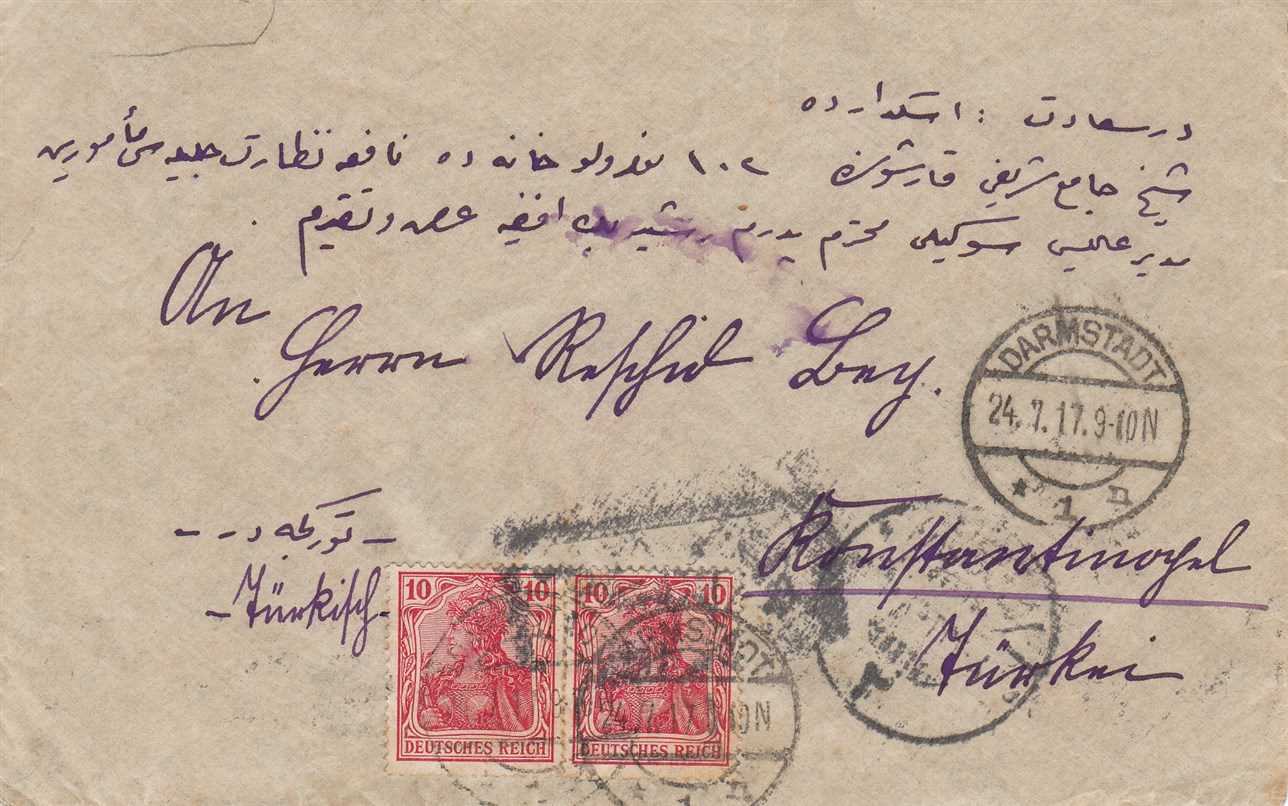 در سعادت : اسکدارده
شیخ جامع شریفی قارشوسنده ١٠٢ نومرولو خانه ده نافعه نظارت جلیله سی مأمورین
مدیر محترم پدرم رشید بك افندیه عرض و تقدیم
An
Herrn Reschid Bey.
DARMSTADT
24.7.17.9-10N
* 1 n
Konstantinopel
Türkei
- تورکجه در -
- Türkisch -
10 10
DEUTSCHES REICH
10 10
DEUTSCHES REICH
DARMSTADT
24.7.17.9-10N
* 1 n